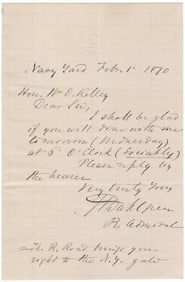 Navy Yard Feb. 1st 1870
Hon. Wm D. Kelley
Dear Sir,
I shall be glad
if you will dine with me
tomorrow (Wednesday)
at 5 O'Clock (Sociably)
Please reply by
the bearer
Very truly Yours
J A Dahlgren
R. Admiral
R. Road brings you
right to the N.Y. gate